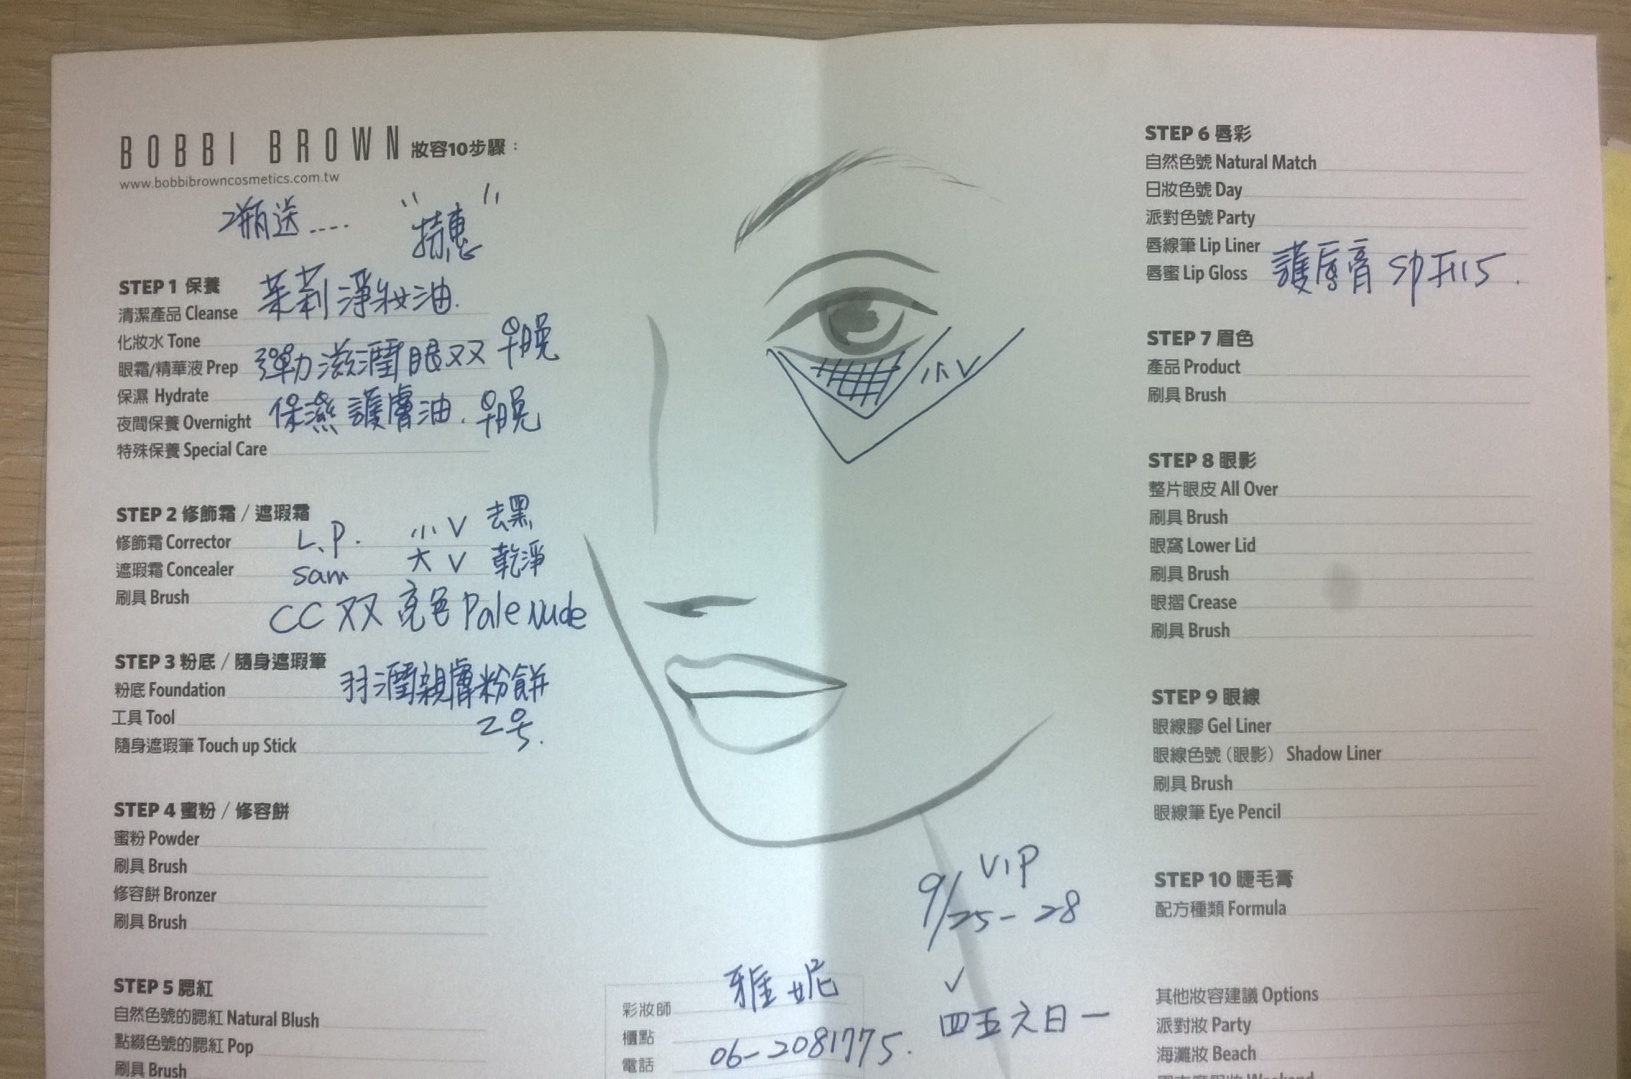 BOBBI BROWN 妝容10步驟：
www.bobbibrowncosmetics.com.tw
2瓶送.... "特惠"
STEP 1 保養
清潔產品 Cleanse 茉莉淨妝油.
化妝水 Tone
眼霜/精華液 Prep 彈力滋潤眼双 早晚
保濕 Hydrate
夜間保養 Overnight 保濕護膚油. 早晚
特殊保養 Special Care
STEP 2 修飾霜 / 遮瑕霜
修飾霜 Corrector L.P. 小V 去黑
遮瑕霜 Concealer Sam 大V 乾淨
刷具 Brush
CC双 亮色 Pale nude
STEP 3 粉底 / 隨身遮瑕筆
粉底 Foundation 羽潤親膚粉餅
工具 Tool 2号.
隨身遮瑕筆 Touch up Stick
STEP 4 蜜粉 / 修容餅
蜜粉 Powder
刷具 Brush
修容餅 Bronzer
刷具 Brush
STEP 5 腮紅
自然色號的腮紅 Natural Blush
點綴色號的腮紅 Pop
刷具 Brush
小V
VIP
9/25-28
✓
四五六日一
彩妝師 雅妮
櫃點
電話 06-2081775.
STEP 6 唇彩
自然色號 Natural Match
日妝色號 Day
派對色號 Party
唇線筆 Lip Liner
唇蜜 Lip Gloss 護唇膏 SPF15.
STEP 7 眉色
產品 Product
刷具 Brush
STEP 8 眼影
整片眼皮 All Over
刷具 Brush
眼窩 Lower Lid
刷具 Brush
眼摺 Crease
刷具 Brush
STEP 9 眼線
眼線膠 Gel Liner
眼線色號（眼影） Shadow Liner
刷具 Brush
眼線筆 Eye Pencil
STEP 10 睫毛膏
配方種類 Formula
其他妝容建議 Options
派對妝 Party
海灘妝 Beach